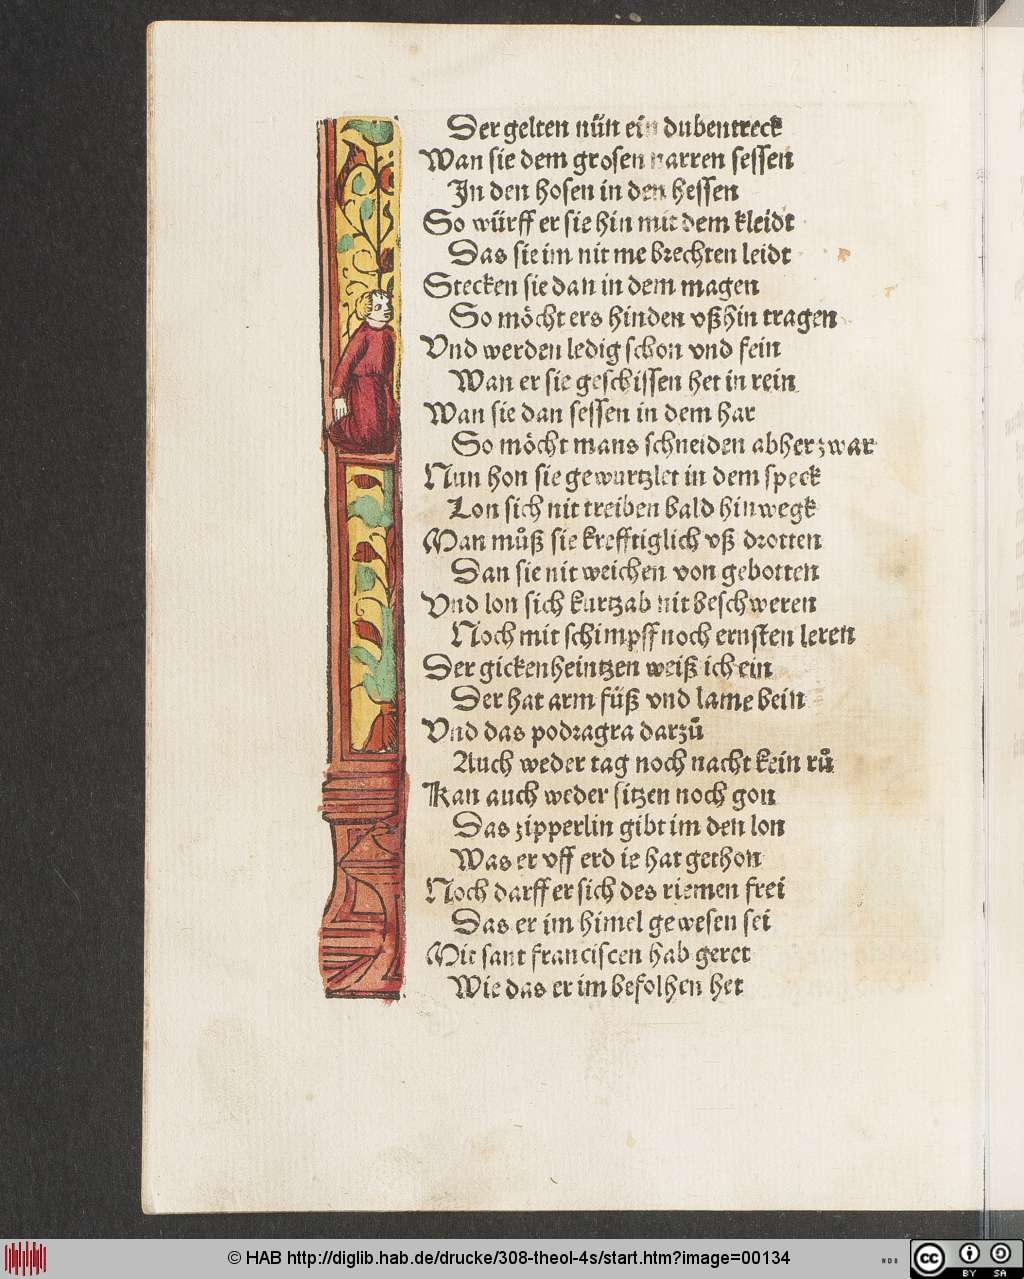 Der gelten nün ein dubentreck
Wan sie dem grosen narren sessen
In den hosen in den hessen
So würff er sie hin mit dem kleidt
Das sie im nit me brechten leidt
Stecken sie dan in dem magen
So möcht ers hinden vßhin tragen
Vnd werden ledig schon vnd fein
Wan er sie geschissen het in rein
Wan sie dan sessen in dem har
So möcht mans schneiden abher zwar
Nun hon sie gewurtzlet in dem speck
Lon sich nit treiben bald hinwegk
Man muͦß sie krefftiglich vß drotten
Dan sie nit weichen von gebotten
Vnd lon sich kurtzab nit beschweren
Noch mit schimpff noch ernsten leren
Der gickenheintzen weiß ich ein
Der hat arm füß vnd lame bein
Vnd das podragra darzuͦ
Auch weder tag noch nacht kein ruͦ
Kan auch weder sitzen noch gon
Das zipperlin gibt im den lon
Was er vff erd ie hat gethon
Noch darff er sich des riemen frei
Das er im himel gewesen sei
Mit sant franciscen hab geret
Wie das er im befolhen het
© HAB http://diglib.hab.de/drucke/308-theol-4s/start.htm?image=00134
WDB
cc
BY SA